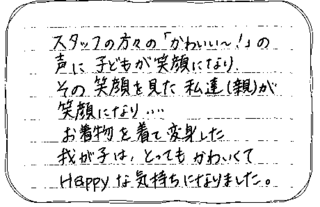 スタッフの方々の「かわいい~!」の
声に子どもが笑顔になり、
その笑顔を見た私達(親)が
笑顔になり....
お着物を着て変身した
我が子は、とってもかわいくて
Happyな気持ちになりました。